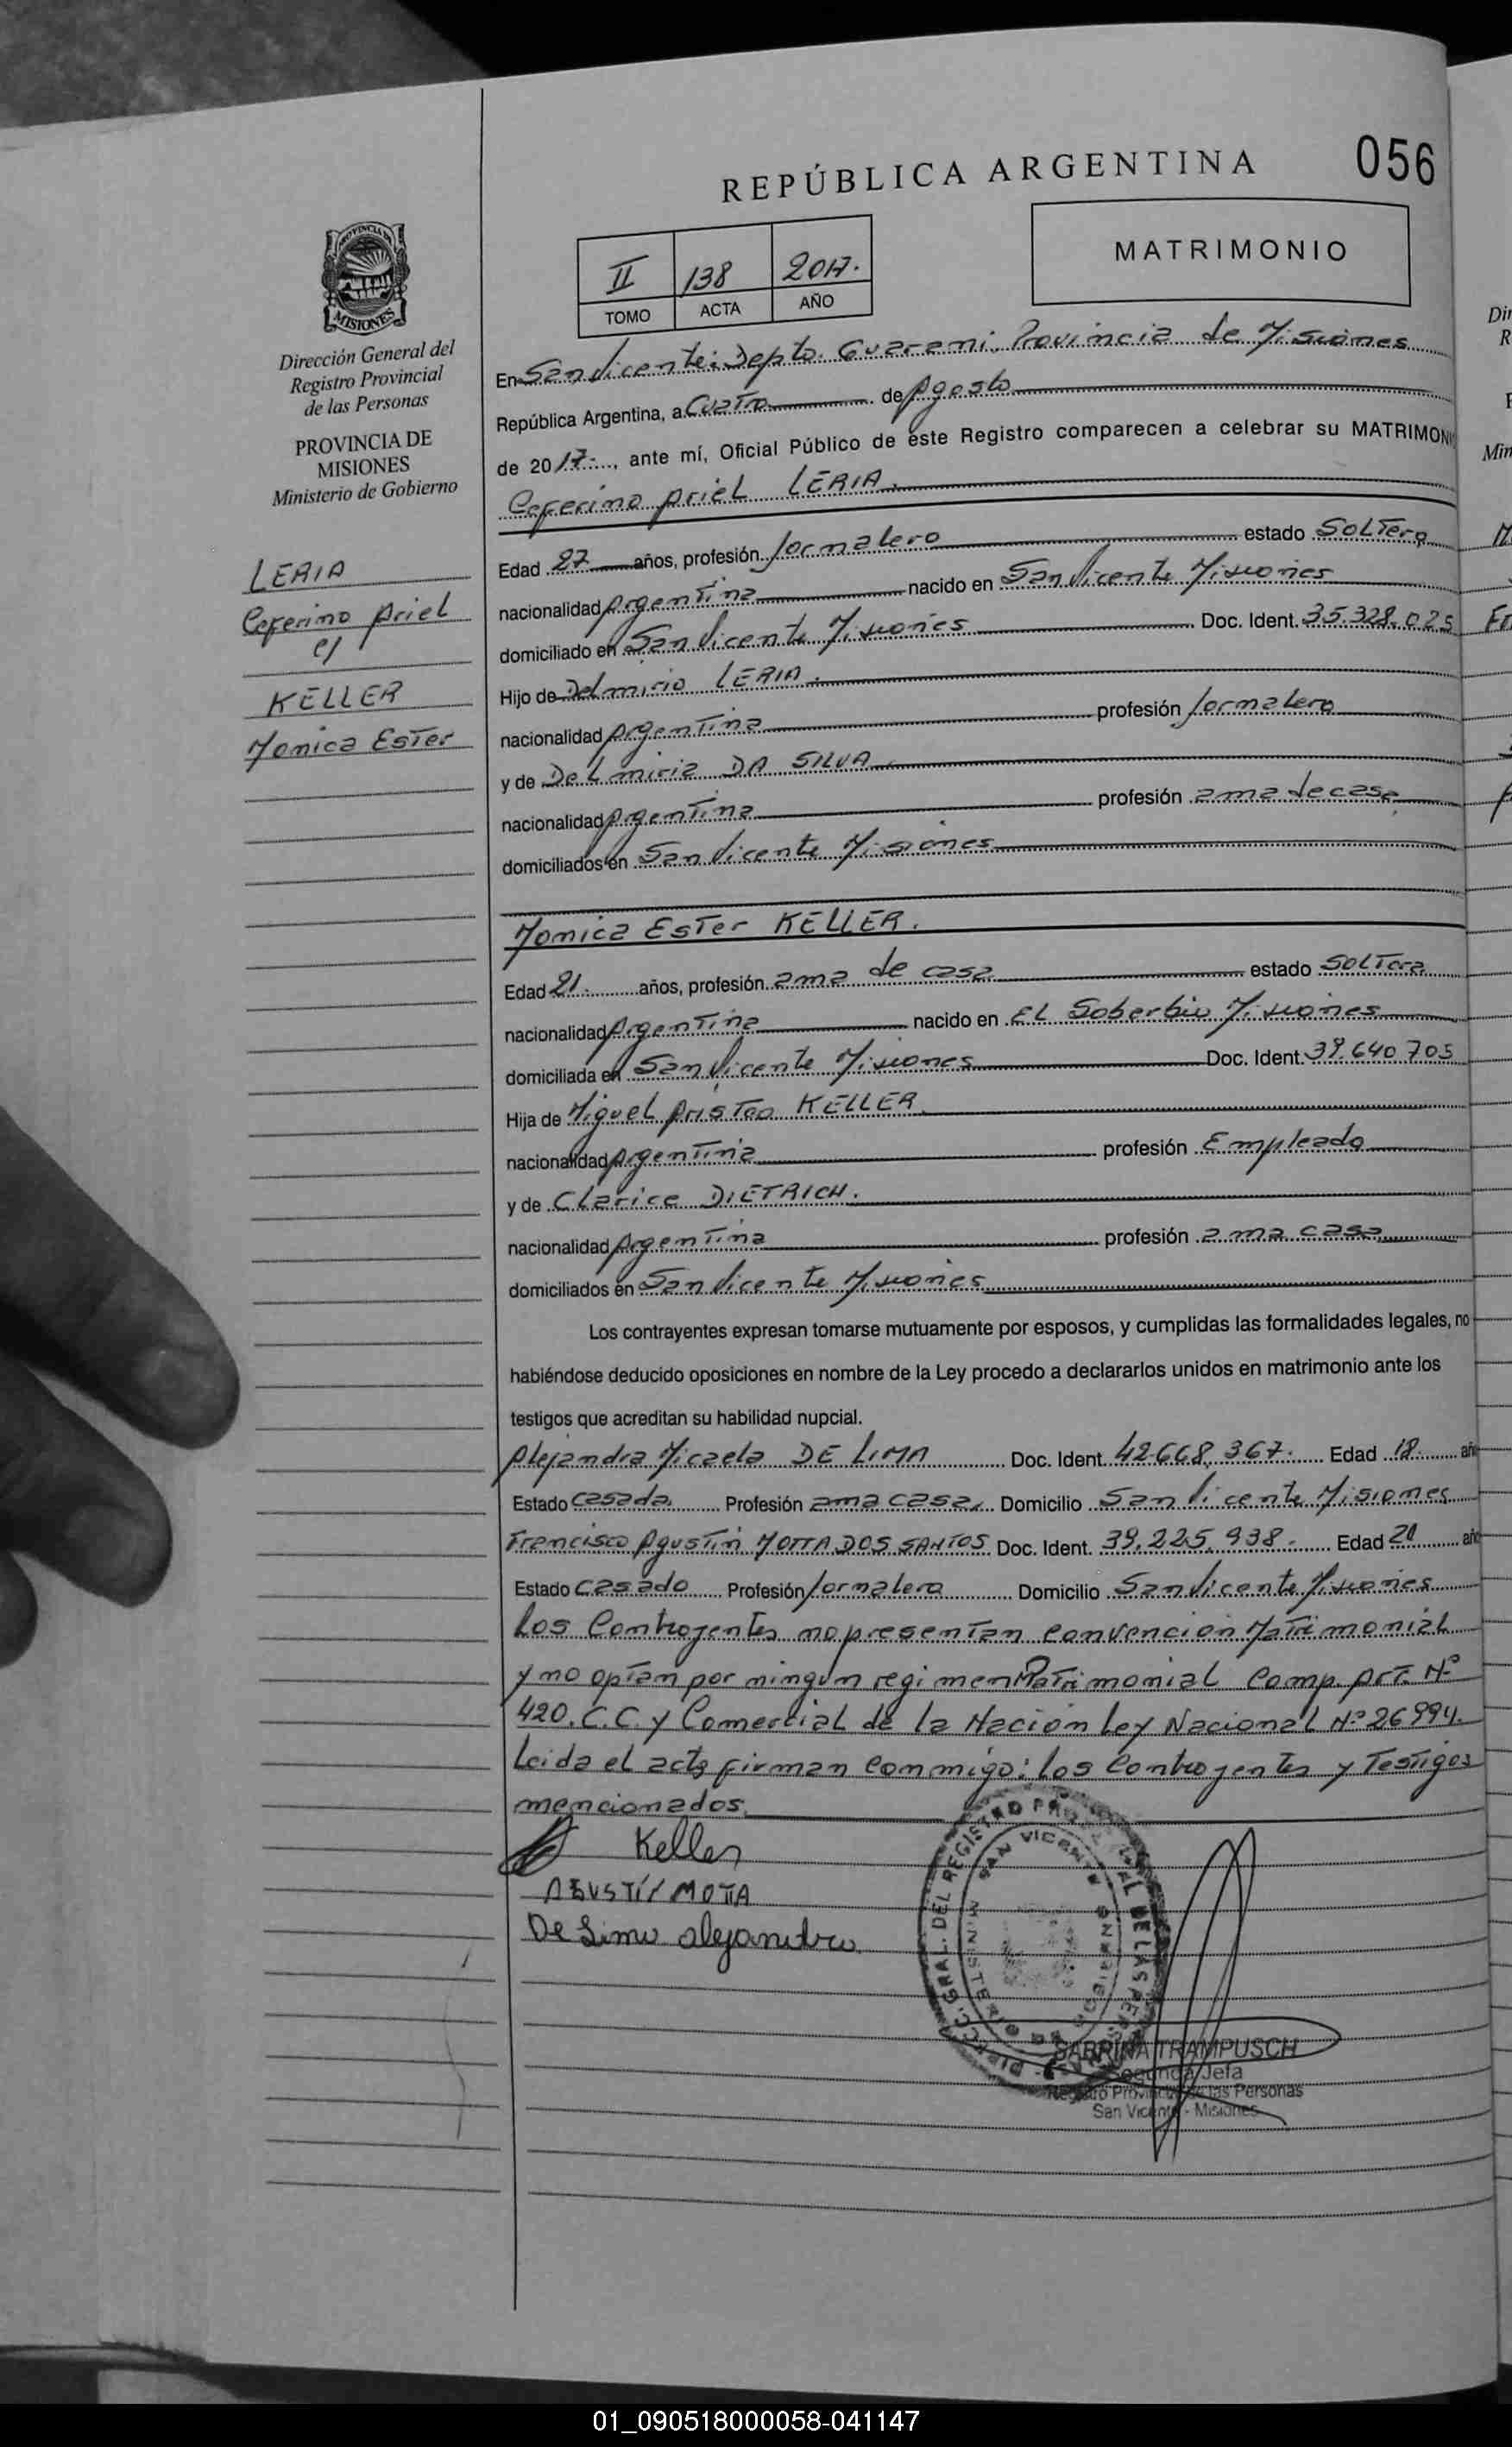 056
REPÚBLICA ARGENTINA
MATRIMONIO
II 138 2017.
TOMO ACTA AÑO
PROVINCIA DE
MISIONES
Dirección General del
Registro Provincial
de las Personas
PROVINCIA DE
MISIONES
Ministerio de Gobierno
LERIA
Ceferino Ariel
c/
KELLER
Monica Ester
En San Vicente: Depto. Guarani. Provincia de Misiones
República Argentina, a Cuatro de Agosto
de 2017, ante mí, Oficial Público de este Registro comparecen a celebrar su MATRIMONI
Ceferino Ariel LERIA.
Edad 27 años, profesión Jornalero estado Soltero
nacionalidad Argentina nacido en San Vicente Misiones
domiciliado en San Vicente Misiones Doc. Ident. 35.328.025
Hijo de Delmirio LERIA.
nacionalidad Argentina profesión Jornalero
y de Delmiria DA SILVA
nacionalidad Argentina profesión ama de casa
domiciliados en San Vicente Misiones
Monica Ester KELLER.
Edad 21. años, profesión ama de casa estado Soltera
nacionalidad Argentina nacido en El Soberbio Misiones
domiciliada en San Vicente Misiones Doc. Ident. 39.640.705
Hija de Miguel Aristeo KELLER
nacionalidad Argentina profesión Empleado
y de Clarice DIETRICH.
nacionalidad Argentina profesión ama casa
domiciliados en San Vicente Misiones
Los contrayentes expresan tomarse mutuamente por esposos, y cumplidas las formalidades legales, no
habiéndose deducido oposiciones en nombre de la Ley procedo a declararlos unidos en matrimonio ante los
testigos que acreditan su habilidad nupcial.
Alejandra Micaela DE LIMA Doc. Ident. 42.668.367. Edad 18 añ
Estado Casada Profesión ama casa Domicilio San Vicente Misiones
Francisco Agustin MOTTA DOS SANTOS Doc. Ident. 39.225.938. Edad 21 añ
Estado Casado Profesión Jornalero Domicilio San Vicente Misiones
Los Contrayentes no presentan convencion Matrimonial
y no optan por ningun regimen Patrimonial Comp. Art. Nº
420. C.C. y Comercial de la Nacion Ley Nacional Nº 26994.
Leida el acta firman conmigo: Los Contrayentes y Testigos
mencionados.
Keller
AGUSTÍN MOTTA
De Lima alejandra
SABRINA TRAMPUSCH
Segunda Jefa
Registro Provincial de las Personas
San Vicente - Misiones
01_090518000058-041147